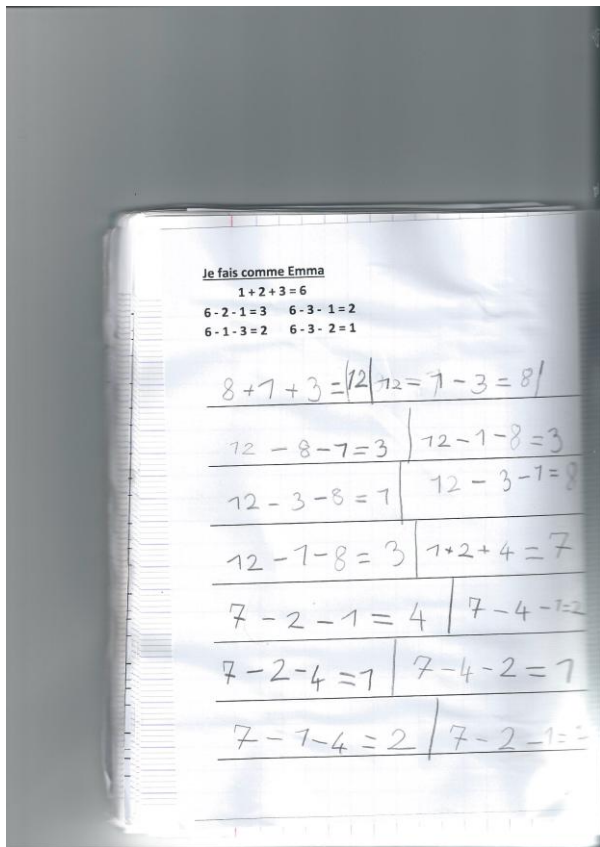 Je fais comme Emma
1 + 2 + 3 = 6
6 - 2 - 1 = 3 6 - 3 - 1 = 2
6 - 1 - 3 = 2 6 - 3 - 2 = 1
8 + 1 + 3 = |12| 12 = 1 - 3 = 8|
12 - 8 - 1 = 3 | 12 - 1 - 8 = 3
12 - 3 - 8 = 1 | 12 - 3 - 1 = 8
12 - 1 - 8 = 3 | 1 + 2 + 4 = 7
7 - 2 - 1 = 4 | 7 - 4 - 1 = 2
7 - 2 - 4 = 1 | 7 - 4 - 2 = 1
7 - 1 - 4 = 2 | 7 - 2 - 1 =